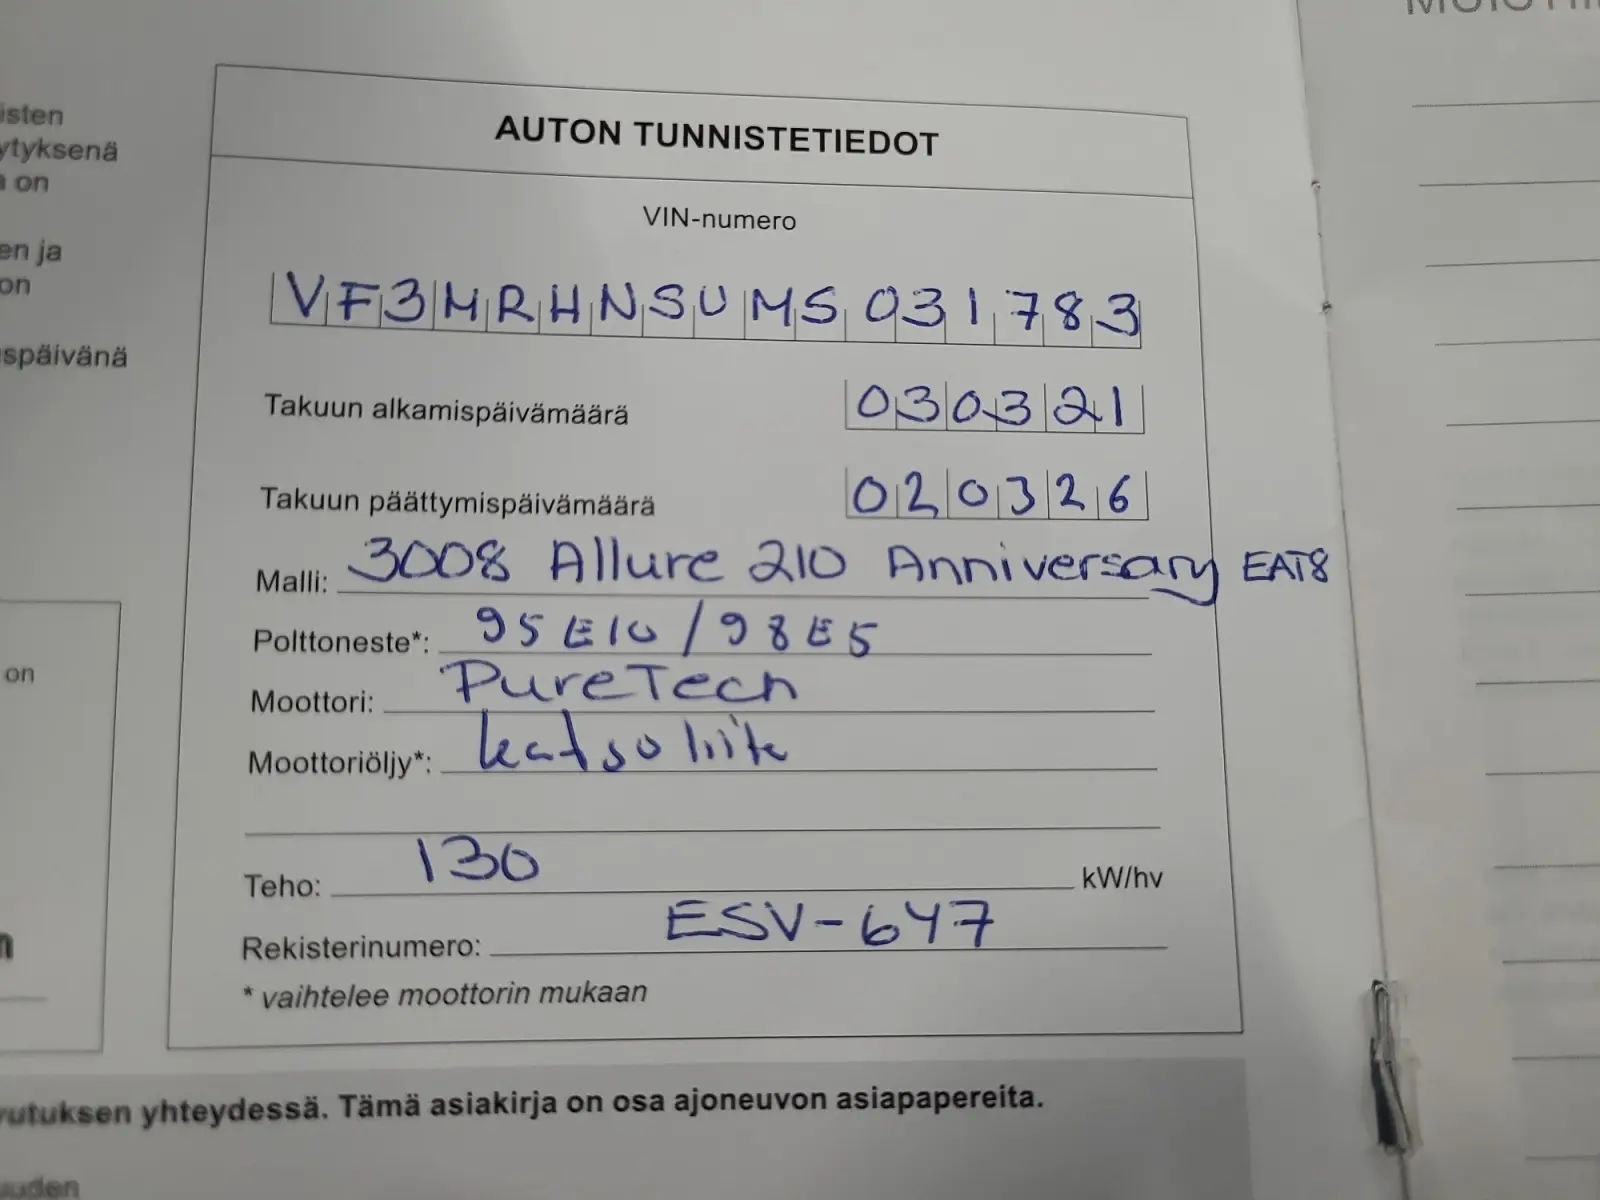 isten
ytyksenä
on
en ja
on
späivänä
on
AUTON TUNNISTETIEDOT
VIN-numero
VF3MRHNSUMS031783
Takuun alkamispäivämäärä 030321
Takuun päättymispäivämäärä 020326
Malli: 3008 Allure 210 Anniversary EAT8
Polttoneste*: 95E10/98E5
Moottori: PureTech
Moottoriöljy*: katso liite
Teho: 130 kW/hv
Rekisterinumero: ESV-647
* vaihtelee moottorin mukaan
vutuksen yhteydessä. Tämä asiakirja on osa ajoneuvon asiapapereita.
uuden